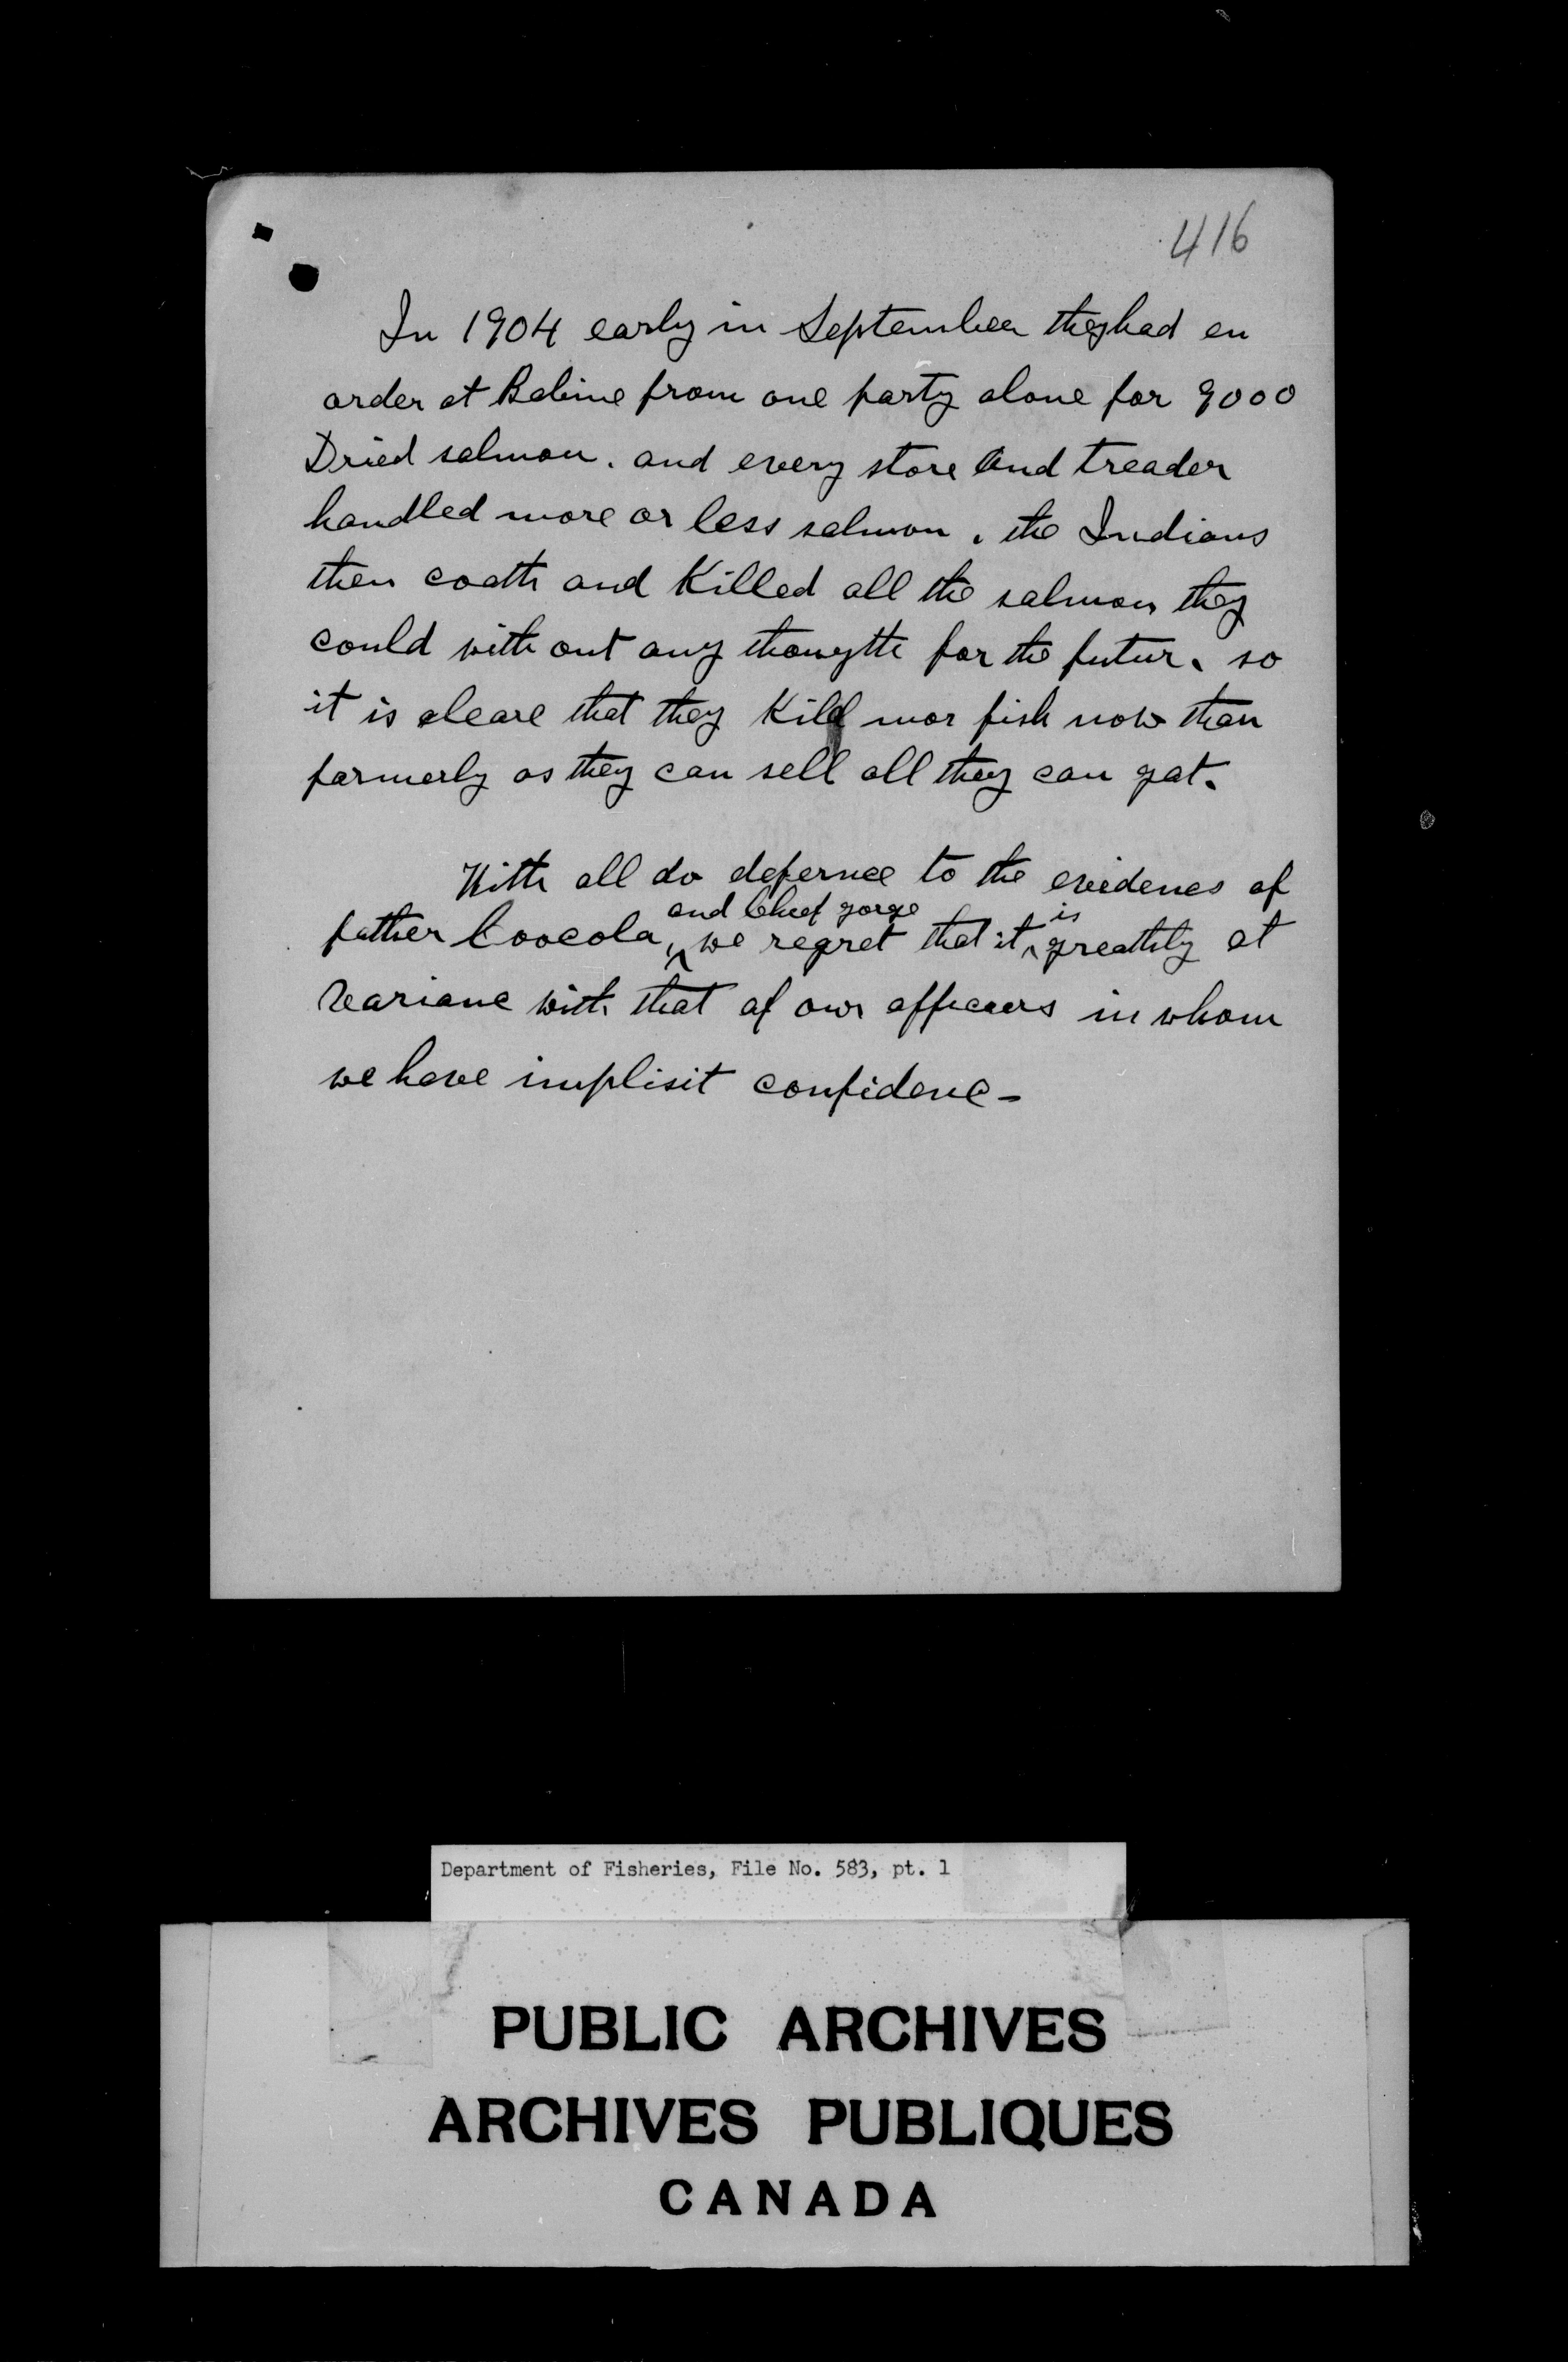 416
In 1904 early in September they had en
order at Babine from one party alone for 9000
Dried salmon. and every store and treader
handled more or less salmon. the Indians
then coath and Killed all the salmon they
could with out any thougth for the futur. so
it is cleare that they Kild mor fish now than
formerly as they can sell all they can gat.
With all do defernce to the evidence of
and Chief gorge is
father Coocola, we regret that it greathly at
Variance with that of our officers in whom
we have implisit confidenc -
Department of Fisheries, File No. 583, pt. 1
PUBLIC ARCHIVES
ARCHIVES PUBLIQUES
CANADA